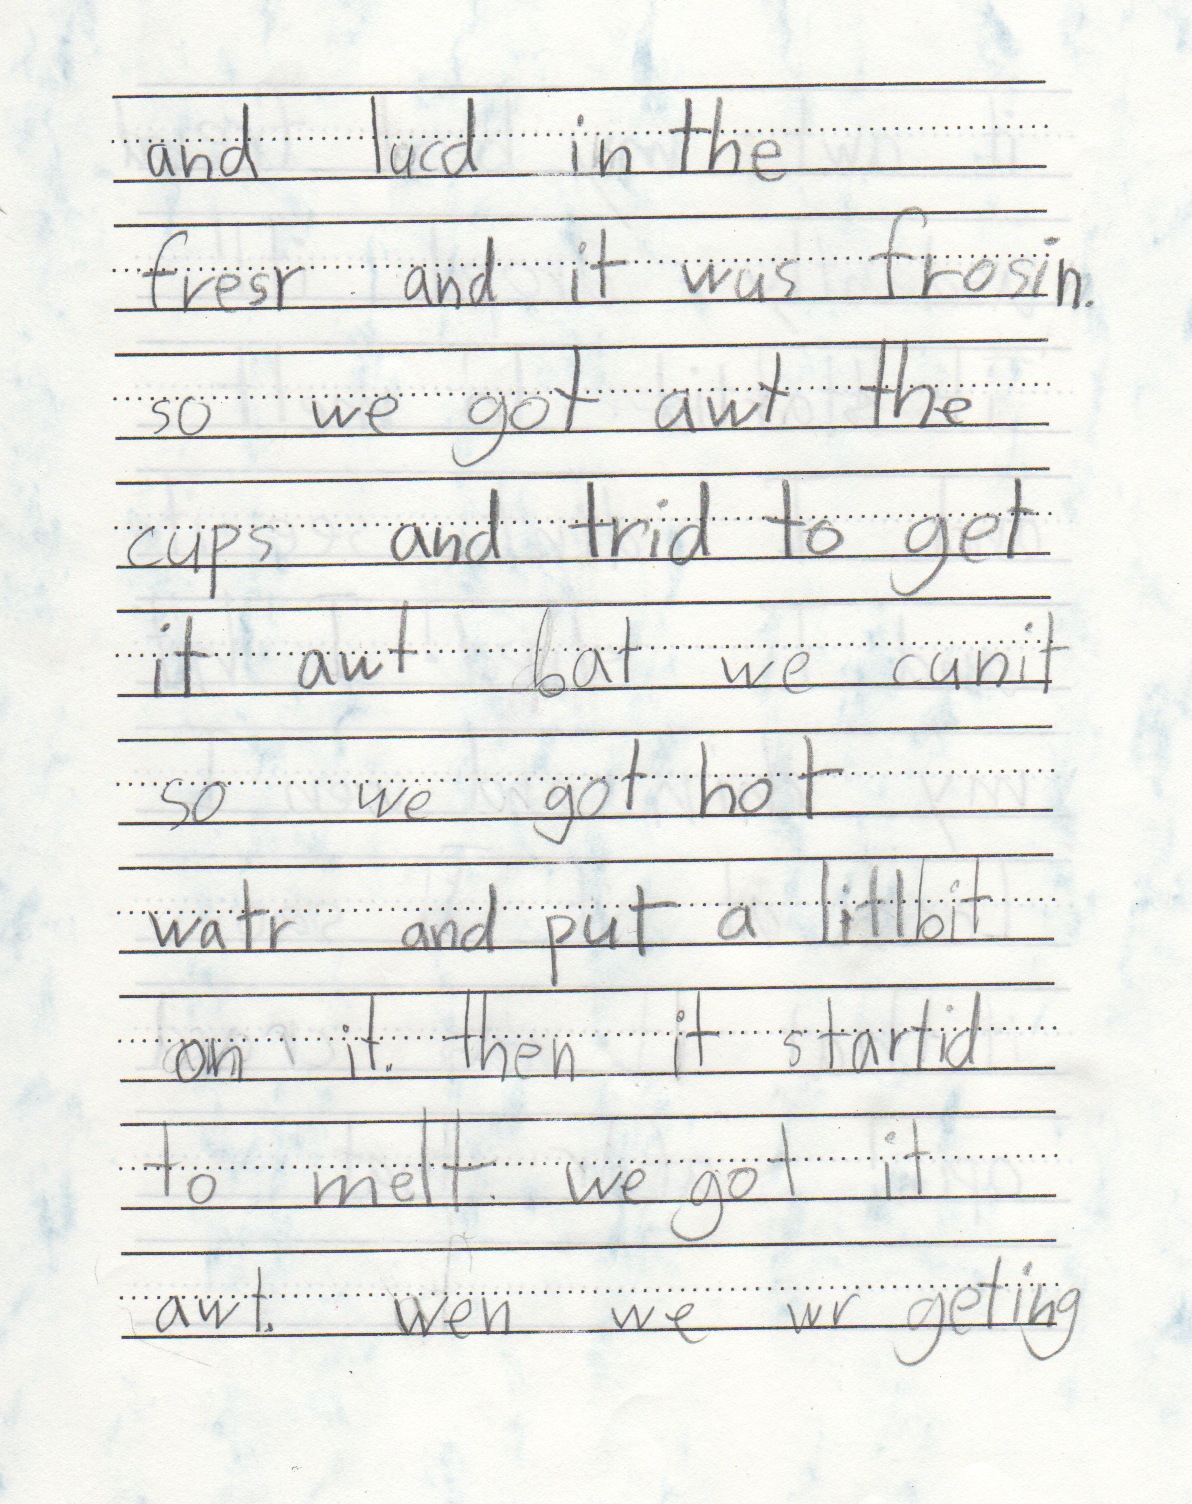 and lucd in the
fresr and it wus frosin.
so we got awt the
cups and trid to get
it awt bat we cunit
so we got hot
watr and put a litl bit
on it. then it startid
to melt. we got it
awt. wen we wr geting